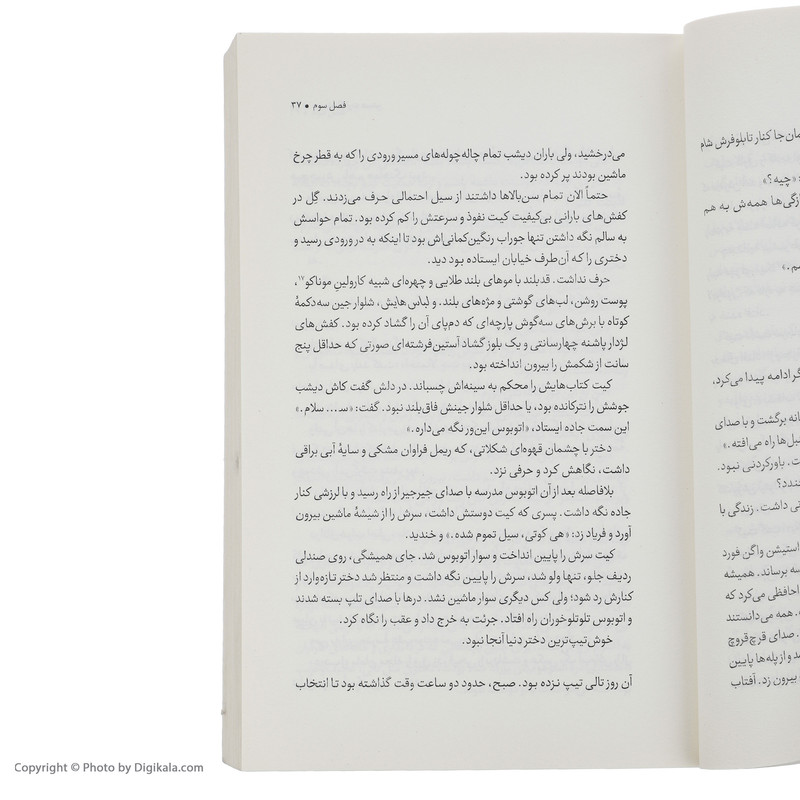 فصل سوم • ۳۷
می‌درخشید، ولی باران دیشب تمام چاله‌چوله‌های مسیر ورودی را که به قطر چرخ
ماشین بودند پر کرده بود.
حتماً الان تمام سن‌بالاها داشتند از سیل احتمالی حرف می‌زدند. گِل در
کفش‌های بارانی بی‌کیفیت کیت نفوذ و سرعتش را کم کرده بود. تمام حواسش
به سالم نگه داشتن تنها جوراب رنگین‌کمانی‌اش بود تا اینکه به در ورودی رسید و
دختری را که آن‌طرف خیابان ایستاده بود دید.
حرف نداشت. قدبلند با موهای بلند طلایی و چهره‌ای شبیه کارولین موناکو۱۷،
پوست روشن، لب‌های گوشتی و مژه‌های بلند. و لباس‌هایش، شلوار جین سه‌دکمهٔ
کوتاه با برش‌های سه‌گوش پارچه‌ای که دم‌پای آن را گشاد کرده بود. کفش‌های
لژدار پاشنه چهارسانتی و یک بلوز گشاد آستین‌فرشته‌ای صورتی که حداقل پنج
سانت از شکمش را بیرون انداخته بود.
کیت کتاب‌هایش را محکم به سینه‌اش چسباند. در دلش گفت کاش دیشب
جوشش را نترکانده بود، یا حداقل شلوار جینش فاق‌بلند نبود. گفت: «سـ... سلام.»
این سمت جاده ایستاد، «اتوبوس این‌ور نگه می‌داره.»
دختر با چشمان قهوه‌ای شکلاتی، که ریمل فراوان مشکی و سایهٔ آبی براقی
داشت، نگاهش کرد و حرفی نزد.
بلافاصله بعد از آن اتوبوس مدرسه با صدای جیرجیر از راه رسید و با لرزشی کنار
جاده نگه داشت. پسری که کیت دوستش داشت، سرش را از شیشهٔ ماشین بیرون
آورد و فریاد زد: «هی کوتی، سیل تموم شده.» و خندید.
کیت سرش را پایین انداخت و سوار اتوبوس شد. جای همیشگی، روی صندلی
ردیف جلو، تنها ولو شد، سرش را پایین نگه داشت و منتظر شد دختر تازه‌وارد از
کنارش رد شود؛ ولی کس دیگری سوار ماشین نشد. درها با صدای تلپ بسته شدند
و اتوبوس تلوتلوخوران راه افتاد. جرئت به خرج داد و عقب را نگاه کرد.
خوش‌تیپ‌ترین دختر دنیا آنجا نبود.
آن روز تالی تیپ نزده بود. صبح، حدود دو ساعت وقت گذاشته بود تا انتخاب
مان‌جا کنار تابلوفرش شام
«چیه؟»
زگی‌ها همه‌ش به هم
سم.»
گر ادامه پیدا می‌کرد،
انه برگشت و با صدای
سیل‌ها راه می‌افته.»
ت. باورکردنی نبود.
خندد؟
ی داشت. زندگی با
استیشن واگن فورد
سه برساند. همیشه
احافظی می‌کرد که
. همه می‌دانستند
. صدای قرچ‌قروچ
د و از پله‌ها پایین
بیرون زد. آفتاب
Copyright © Photo by Digikala.com